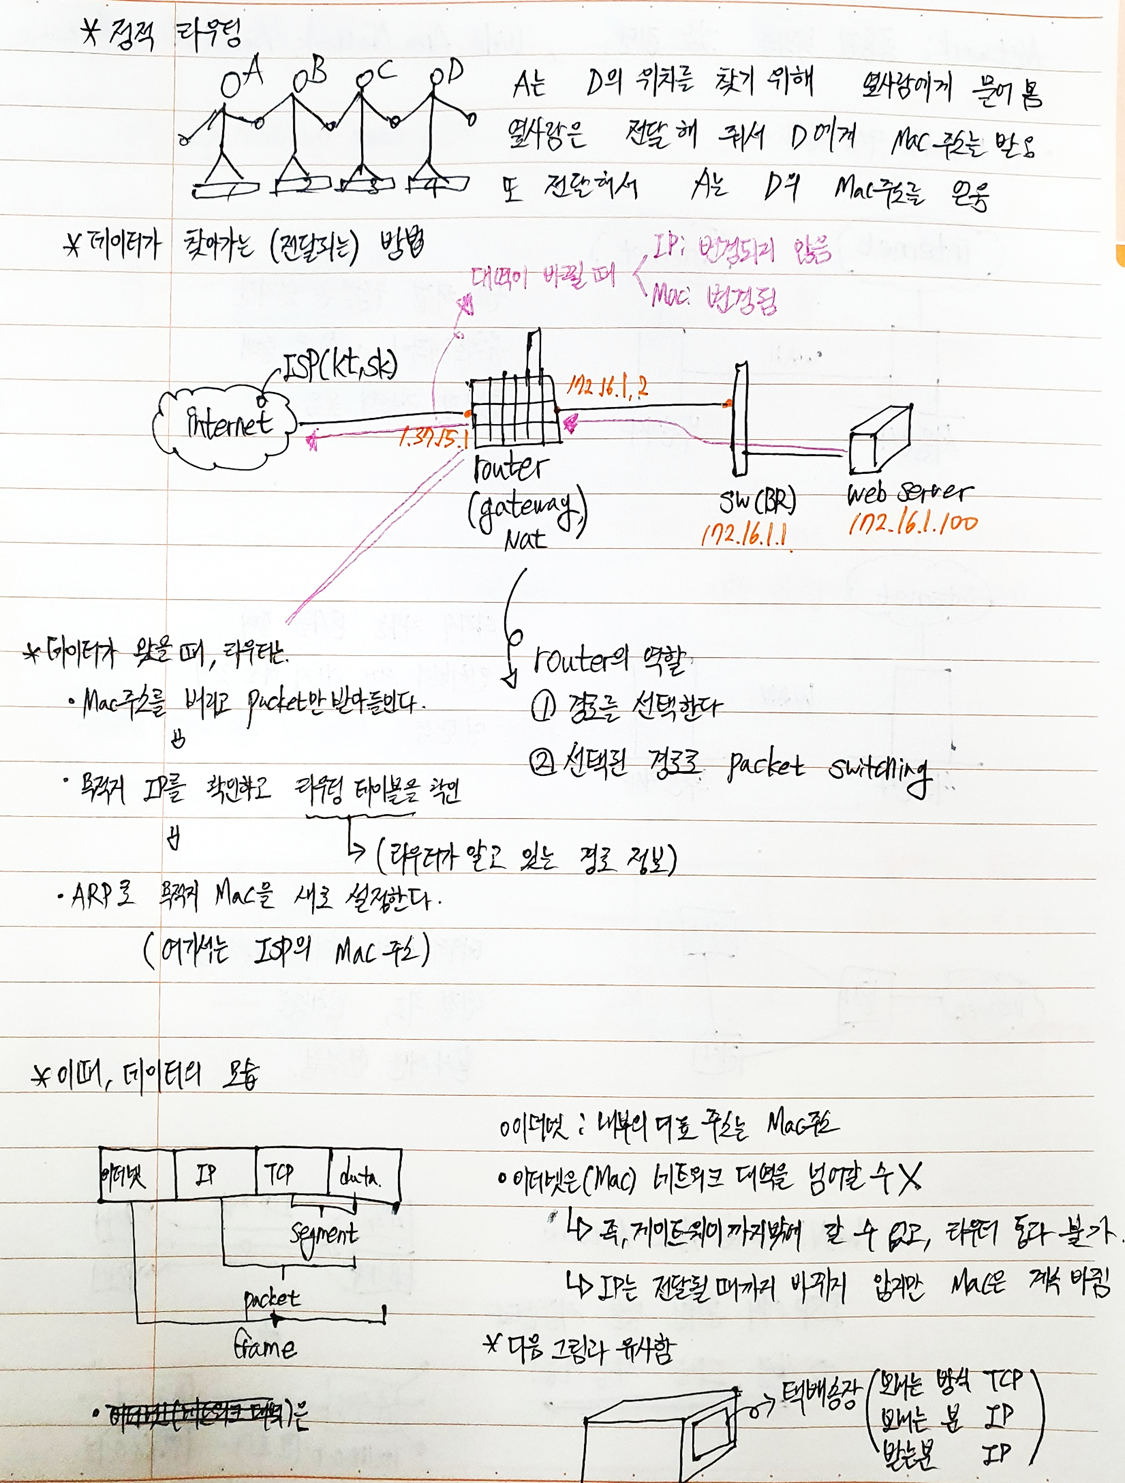 * 정적 라우팅
A B C D
1 2 3 4
A는 D의 위치를 찾기 위해 옆사람에게 물어 봄
옆사람은 전달해 줘서 D에게 Mac 주소는 받음
또 전달해서 A는 D의 Mac주소를 얻음
* 데이터가 찾아가는 (전달되는) 방법
대역이 바뀔 때
IP: 변경되지 않음
Mac: 변경됨
ISP(kt,sk)
internet
1.37.15.1
172.16.1.2
router
(gateway,)
Nat
SW(BR)
172.16.1.1
Web Server
172.16.1.100
* 데이터가 왔을 때, 라우터는.
• Mac주소를 버리고 packet만 받아들인다.
• 목적지 IP를 확인하고 라우팅 테이블을 확인
(라우터가 알고 있는 경로 정보)
• ARP로 목적지 Mac을 새로 설정한다.
(여기서는 ISP의 Mac 주소)
router의 역할
① 경로를 선택한다
② 선택된 경로로 packet switching
* 이때, 데이터의 모습
이더넷 IP TCP data.
segment
packet
frame
o이더넷 : 내부의 대표 주소는 Mac주소
•이더넷은(Mac) 네트워크 대역을 넘어갈 수 X
↳ 즉, 게이트웨이까지밖에 갈 수 없고, 라우터 통과 불가.
↳ IP는 전달될 때까지 바뀌지 않지만 Mac은 계속 바뀜
* 다음 그림과 유사함
• 이더넷(네트워크 대역)은
택배송장
보내는 방식 TCP
보내는 분 IP
받는분 IP